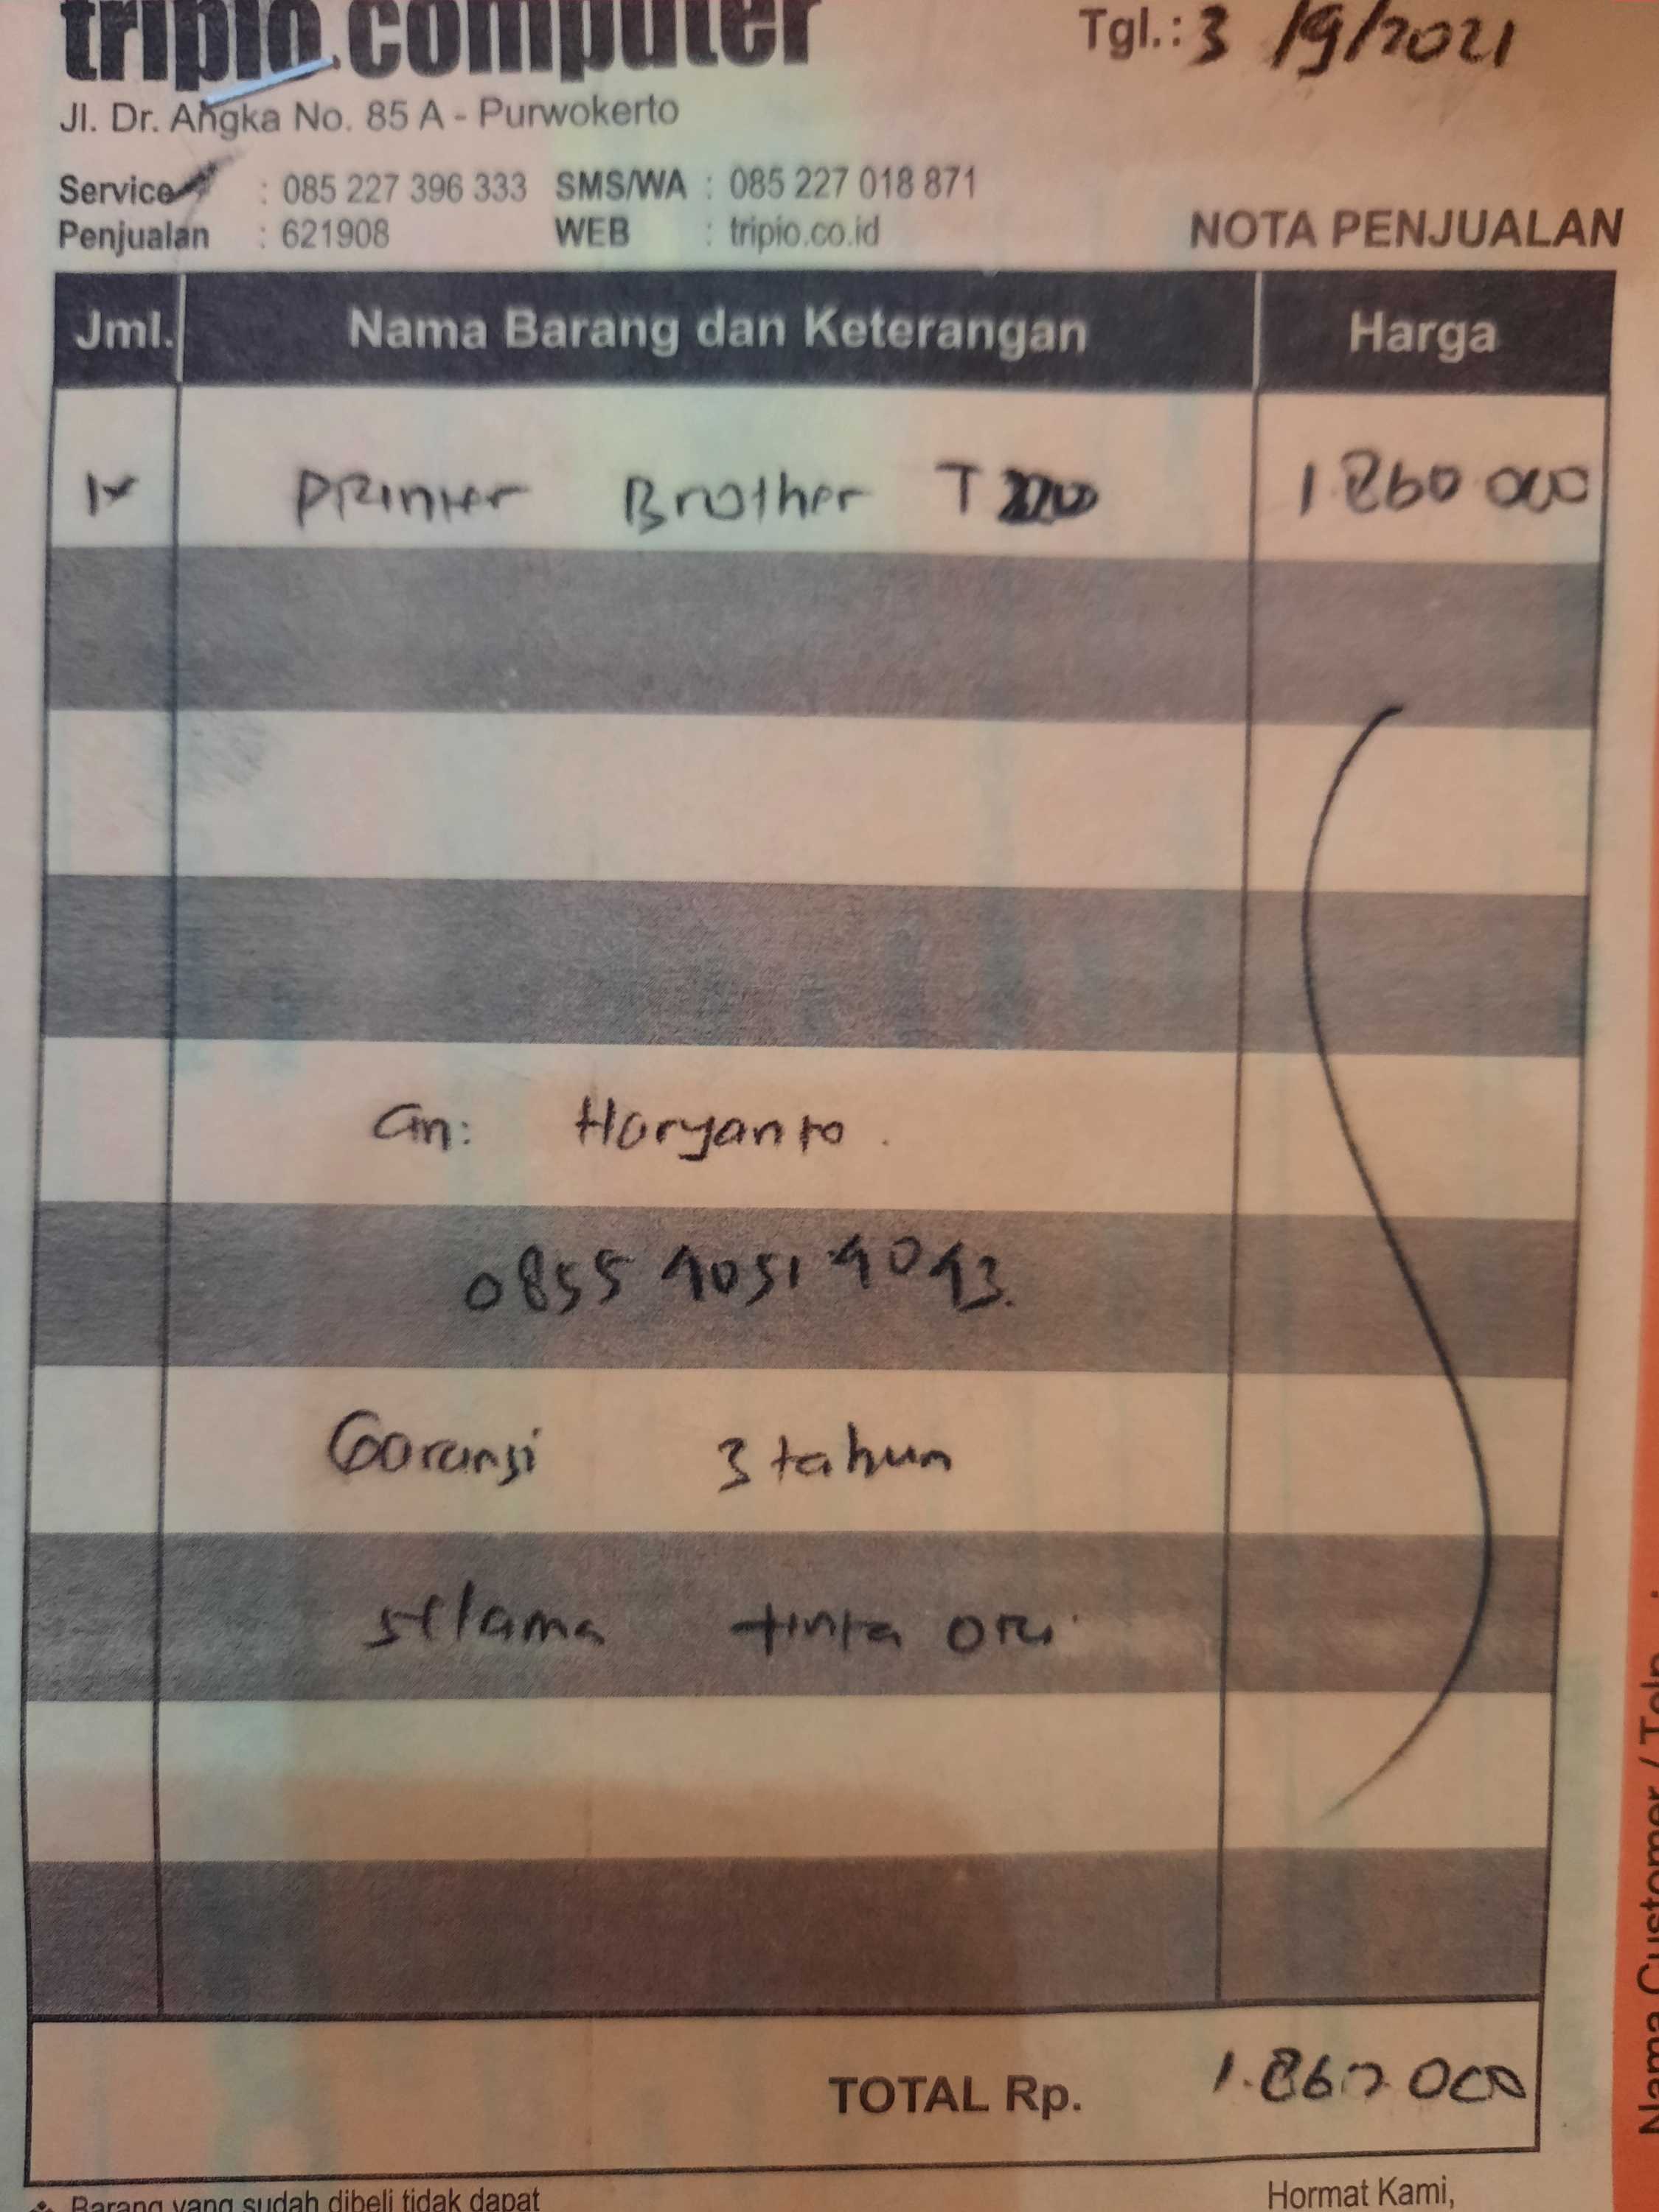 tripio.computer
Tgl.: 3 /9/2021
Jl. Dr. Angka No. 85 A - Purwokerto
Service : 085 227 396 333 SMS/WA : 085 227 018 871
Penjualan : 621908 WEB : tripio.co.id
NOTA PENJUALAN
Jml. Nama Barang dan Keterangan Harga
1x Printer Brother 1.860.000
an: Haryanto.
0855 4051 4043.
Garansi 3 tahun
selama tinta ori
TOTAL Rp. 1.860.000
Barang yang sudah dibeli tidak dapat
Hormat Kami,
Nama Customer / Telp